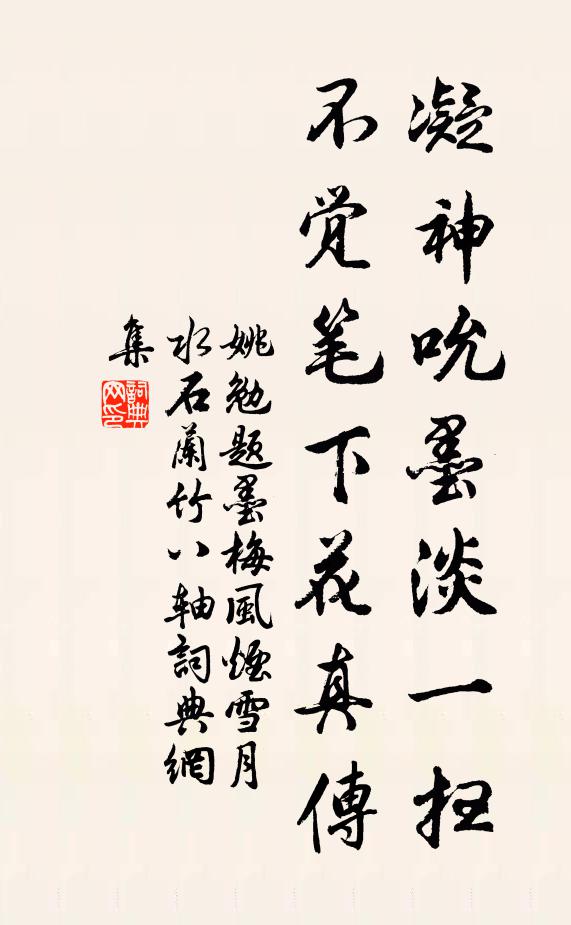 凝神吮墨淡一扫
不觉笔下花真傳
姚勉题墨梅風煙雪月
水石蘭竹八轴詞典網
集
詞典
网印